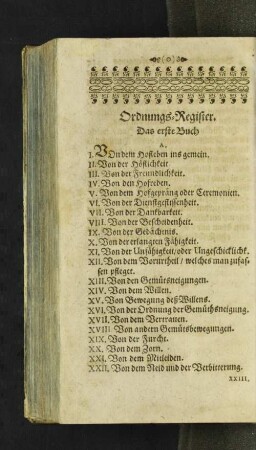 (0)
Ordnungs-Register.
Das erste Buch
A.
I. VOn dem Hofleben ins gemein.
II. Von der Höflichkeit
III. Von der Freundlichkeit.
IV. Von den Hofreden.
V. Von dem Hofgepräng oder Ceremonien.
VI. Von der Dienstgeflissenheit.
VII. Von der Danckbarkeit.
VIII. Von der Bescheidenheit.
IX. Von der Gedächtnis.
X. Von der erlangten Fähigkeit.
XI. Von der Unfähigkeit/ oder Ungeschicklickk.
XII. Von dem Vorurtheil / welches man zufassen
sen pfleget.
XIII. Von den Gemütsneigungen.
XIV. Von dem Willen.
XV. Von Bewegung deß Willens.
XVI. Von der Ordnung der Gemühtsneigung.
XVII. Von dem Vertrauen.
XVIII. Von andern Gemütsbewegungen.
XIX. Von der Furcht.
XX. Von dem Zorn.
XXI. Von dem Mitleiden.
XXII. Von dem Neid und der Verbitterung.
XXIII.